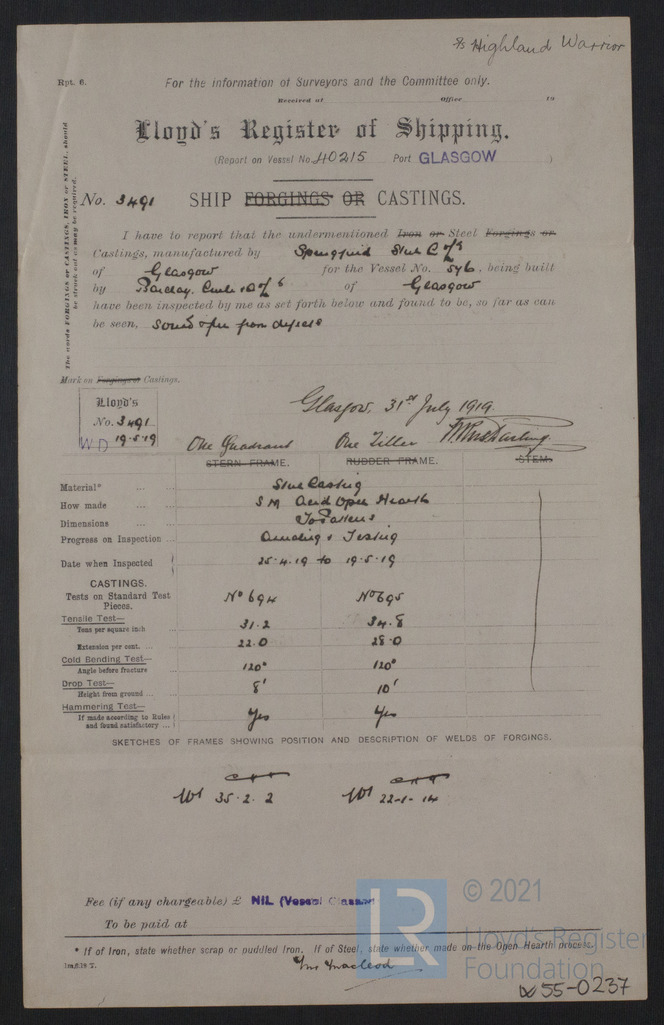 S/S Highland Warrior
Rpt. 6.
For the information of Surveyors and the Committee only.
Received at Office 19
Lloyd's Register of Shipping.
(Report on Vessel No. 40215 Port GLASGOW )
No. 3491 SHIP FORGINGS OR CASTINGS.
The words FORGINGS or CASTINGS, IRON or STEEL, should
be struck out as may be required.
I have to report that the undermentioned Iron or Steel Forgings or
Castings, manufactured by Springfield Steel Co Ld
of Glasgow for the Vessel No. 546, being built
by Barclay, Curle & Co Ld of Glasgow
have been inspected by me as set forth below and found to be, so far as can
be seen, sound & free from defects
Mark on Forgings or Castings.
Lloyd's
No. 3491
WD 19.5.19
Glasgow, 31st July 1919
One Quadrant One Tiller
STERN FRAME. RUDDER FRAME. STEM.
Material* Steel Casting
How made S M Acid Open Hearth
Dimensions To Patterns
Progress on Inspection Annealing & Testing
Date when Inspected 25.4.19 to 19.5.19
CASTINGS.
Tests on Standard Test
Pieces. No 694 No 695
Tensile Test—
Tons per square inch 31.2 34.8
Extension per cent. 22.0 28.0
Cold Bending Test—
Angle before fracture 120° 120°
Drop Test—
Height from ground 8' 10'
Hammering Test—
If made according to Rules
and found satisfactory Yes Yes
SKETCHES OF FRAMES SHOWING POSITION AND DESCRIPTION OF WELDS OF FORGINGS.
Wt 35.2.2 Wt 22-1-14
Fee (if any chargeable) £ NIL (Vessel Classed
To be paid at
* If of Iron, state whether scrap or puddled Iron. If of Steel, state whether made on the Open Hearth process.
Wm Macleod
LR
© 2021
Lloyd's Register
Foundation
W55-0237